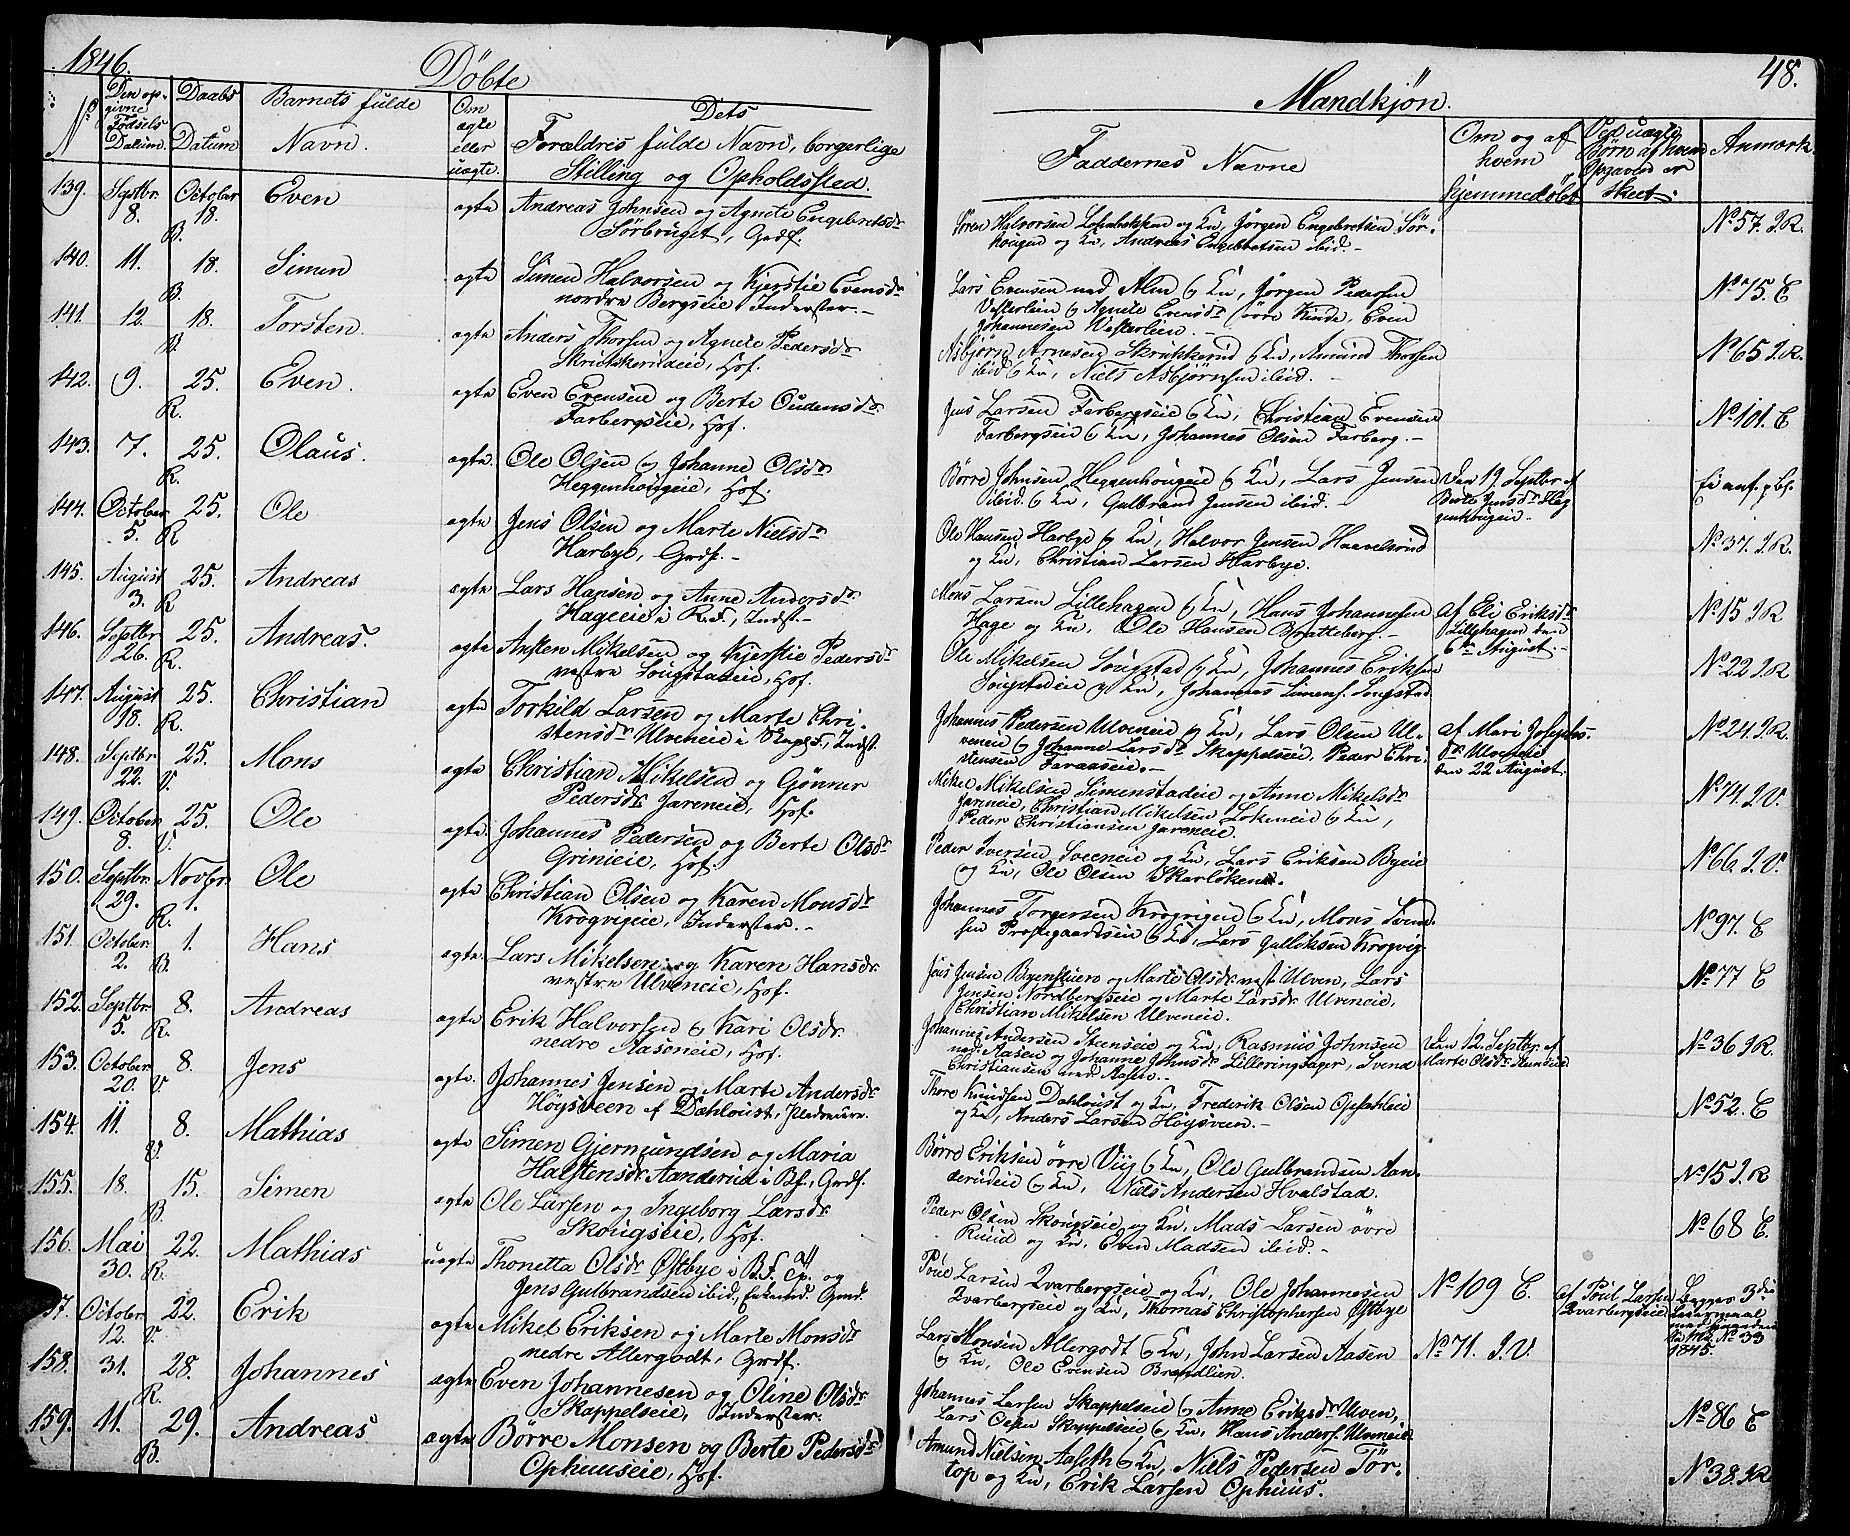 1846.
Döbte
Mandkjøn.
48.
No
Den op-
givne
Födsels
Datum.
Daabs
Datum
Barnets fulde
Navn.
Om
ægte
eller
uægte.
Dets
Forældres fulde Navn, borgerlige
Stilling og Opholdssted.
Faddernes Navne
Om og af
hvem
hjemmedöbt
Ved uægte
Børn af hvem
Opgaven er
skeet.
Anmærk.
139. Septbr. 8. October 18. B. Even ægte Andreas Johnsen og Agnete Engebretsdr
Sörbruget, Grdf.
Sören Halvorsen og Kn, Jörgen Engebretsen Sör-
hougen og Kn, Andreas Engebretsen ibid.-
No 57. J.R.
140. 11. 18. B. Simen ægte Simen Halvorsen og Kjerstie Evensdr
nordre Bergseie, Inderster.-
Lars Evensen ned Alm og Kn, Jörgen Pedersen
Vesterleen og Agnete Evensdr övre Kinde, Even
Johannesen Vesterleen.-
No 75. E
141. 12. 18. B. Torsten. ægte Anders Thorsen og Agnete Pedersdr
Hof.
Asbjörn Arnesen Skrukkerud og Kn, Amund Thorsen
ibid og Kn, Niels Asbjörnsen ibid.-
No 65 J.R.
142. 9. 25. R. Even. ægte Even Evensen og Berte Oudensdr
Farbergseie, Hof.
Jens Larsen Farbergseie og Kn, Christian Evensen
Farbergseie og Kn, Johannes Olsen Farberg.-
No 101. E
143. 7. 25. R. Olaus. ægte. Ole Olsen og Johanne Olsdr
Heggenhougeie, Hof.
Börre Johnsen Heggenhougeie og Kn, Lars Jensen
ibid. og Kn, Gulbrand Jensen ibid.-
Den 19 Septbr af
Berte Jensdr Heg
genhougeie.
144. October 5. 25. R Ole ægte Jens Olsen og Marte Nielsdr
Harbye, Grdf.-
Ole Hansen Harbye og Kn, Halvor Jensen Haavelsrud
og Kn, Christian Larsen Harbye.
No 37. J.R.
145. August 3. 25. R Andreas ægte Lars Hansen og Anne Andersdr
Hageeie i R.F., Indst.-
Mons Larsen Lillehagen og Kn, Hans Johannesen
Hage og Kn, Ole Hansen Bratteberg.-
af Eli Eriksdr
Lillehagen den
6te August.-
No 15 J.R
146. Septbr 26. 25. R. Andreas. ægte Austen Mikelsen og Kjerstie Pedersdr
vestre Sougstadeie, Hof.
Ole Mikelsen Sougstad og Kn, Johannes Eriksen
Sougstadeie og Kn, Johannes Simens. Sougstad
No 22 J.R
147. August 18. 25. R. Christian ægte Torkild Larsen og Marte Chri-
stensdr Ulveneie i Indst.
Johannes Pedersen Ulveneie og Kn, Lars Olsen Ul-
veneie og Johanne Larsdr Skappelseie. Peder Chri-
stensen Faraaseie.-
af Mari Josephs-
dr Ulveneie
den 22 August.
No 24. J.R.
148. Septbr 22. 25. V. Mons ægte Christian Mikelsen og Gönner
Pedersdr Jareneie, Hof.
Mikel Mikelsen Simenstadeie og Anne Mikelsdr
Jareneie, Christian Mikelsen Lokeneie og Kn,
Peder Christiansen Jareneie.
No 74. J.V.
149. October 8. 25. V. Ole ægte. Johannes Pedersen og Berte Olsdr
Grinieie, Hof.
Peder Iversen Sveeneie og Kn, Lars Eriksen Byeie
og Kn, Ole Olsen Skarlöken.
No 66. J.V.
150. Septbr. 29. Novbr. 1. R. Ole ægte Christian Olsen og Karen Monsdr
Krogvigeie, Inderster.-
Johannes Torgersen Krogvigeie og Kn, Mons Svend-
sen Prestgaardseie og Kn, Lars Gulliksen Krogvig.
No 97. E
151. October 2. 1. B. Hans ægte Lars Mikelsen og Karen Hansdr.
vestre Ulveneie, Hof.
Jens Jensen og Marte Olsdr. vest Ulven, Lars
Jensen Nordbergseie og Marte Larsdr. Ulveneie,
Christian Mikelsen Ulveneie.
No 77 E
152. Septbr 5. 8. R. Andreas ægte Erik Halvorsen og Kari Olsdr.
nedre Aaseneie, Hof.
Johannes Andersen Steenseie og Kn, Rasmus Johnsen
ned. Aasen og Johanne Johnsdr Lilleringsager, Svend
Christiansen ned. Aasen.-
Den 12. Septbr. af
Marte Olsdr.
No 36 J.R.
153. October 20. 8. V. Jens ægte. Johannes Jensen og Marte Andersdr.
Höysveen af Dæhloust,
Thore Knudsen Dæhloust og Kn, Frederik Olsen Opsahleie
og Kn, Anders Larsen Höysveen.-
No 52. E
154. 11. 8. V. Mathias ægte Simen Gjermundsen og Maria
Halstensdr. Aanderud i Bf., Grdf.
Börre Eriksen övre Viig og Kn, Ole Gulbrandsen Aan-
derudeie og Kn, Niels Andersen Hvalstad.
No 15 J.R
155. 18. 15. B. Simen ægte Ole Larsen og Ingeborg Larsdr
Skougseie, Hof.
Peder Olsen Skougseie og Kn, Mads Larsen övre
Ruud og Kn, Even Madsen ibid.-
No 68 E.
156. Mai 30. 22. R. Mathias uægte Thonetta Olsdr Østbye i B.F. og
Jens Gulbrandsen ibid, Enkemd.
Poul Larsen Qvarbergseie og Kn, Ole Johannesen
Qvarbergseie og Kn, Thomas Christophersen Østbye
No 109 E.
af Poul Larsen
Qvarbergseie
Begges 3die
Leiermaal
No 33
1845.
157. October 12. 22. V. Erik ægte Mikel Eriksen og Marte Monsdr
nedre Allergodt, Grdf.
Lars Monsen Allergodt og Kn, John Larsen Aasen
og Kn, Ole Evensen Brandlien.
No 71. J.V.
158. 31. 28. R. Johannes ægte Even Johannesen og Oline Olsdr.
Skappelseie, Inderster.
Johannes Larsen Skappelseie og Anne Eriksdr Ulven,
Lars Olsen Skappelseie og Kn, Hans Anders. Ulveneie
No 86 E
159. 11. 29. B. Andreas ægte Börre Monsen og Berte Pedersdr
Ophuuseie, Hof.
Amund Nielsen Aaseth og Kn, Niels Pedersen Tör-
top og Kn, Erik Larsen Ophuus.
No 38. J.R